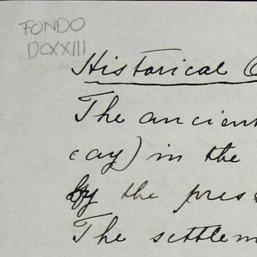 FONDO
DCXXIII
Historical
The ancient
cay) in the
by the pres
The settlem